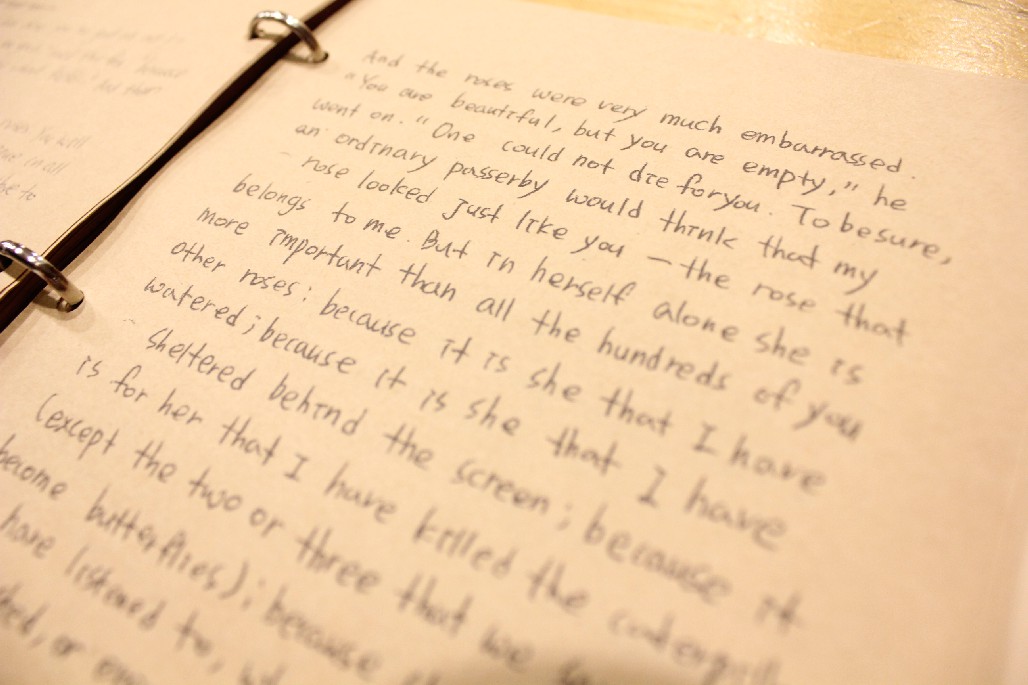 And the roses were very much embarrassed.
"You are beautiful, but you are empty," he
went on. "One could not die for you. To be sure,
an ordinary passerby would think that my
rose looked just like you — the rose that
belongs to me. But in herself alone she is
more important than all the hundreds of you
other roses: because it is she that I have
watered; because it is she that I have
sheltered behind the screen; because it
is for her that I have killed the
(except the two or three that we
become butterflies); because
have listened to,
or